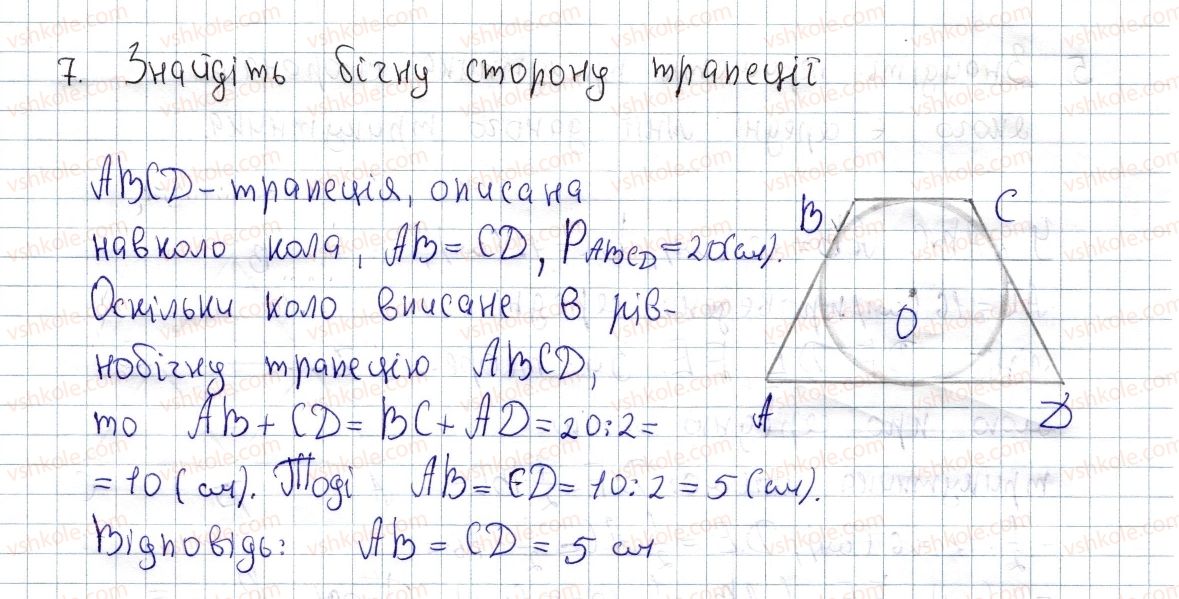 7. Знайдіть бічну сторону трапеції
ABCD – трапеція, описана
навколо кола, AB = CD, P_ABCD = 20(см).
Оскільки коло вписане в рів-
нобічну трапецію ABCD,
то AB + CD = BC + AD = 20:2 =
= 10 (см). Тоді AB = CD = 10:2 = 5 (см).
Відповідь: AB = CD = 5 см
B C
O
A D
vshkole.com